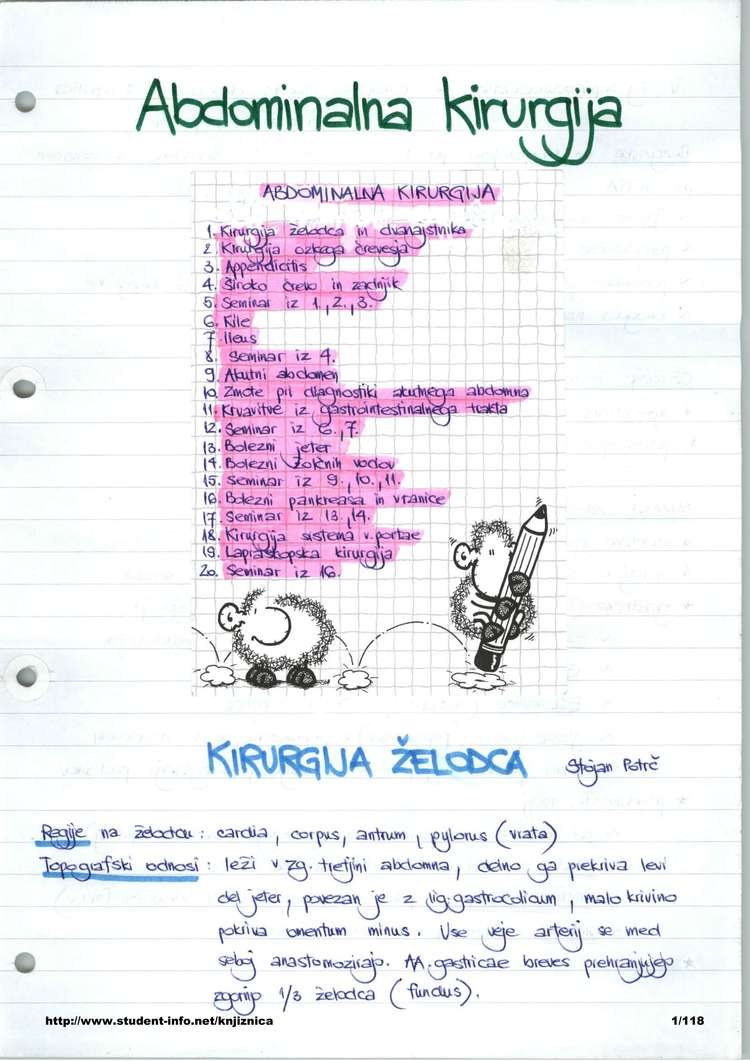 Abdominalna kirurgija
ABDOMINALNA KIRURGIJA
1. Kirurgija želodca in dvanajstnika
2. Kirurgija ozkega črevesja
3. Appendicitis
4. Široko črevo in zadnjik
5. Seminar iz 1., 2., 3.
6. Kile
7. Ileus
8. Seminar iz 4.
9. Akutni abdomen
10. Zmote pri diagnostiki akutnega abdomna
11. Krvavitve iz gastrointestinalnega trakta
12. Seminar iz 6., 7.
13. Bolezni jeter
14. Bolezni žolčnih vodov
15. Seminar iz 9., 10., 11.
16. Bolezni pankreasa in vranice
17. Seminar iz 13., 14.
18. Kirurgija sistema v. portae
19. Lapraskopska kirurgija
20. Seminar iz 16.
KIRURGIJA ŽELODCA Stojan Potrč
Regije na želodcu : cardia, corpus, antrum, pylorus (vrata)
Topografski odnosi : leži v zg. tretjini abdomna, delno ga prekriva levi
del jeter, povezan je z lig. gastrocolicum, malo krivino
pokriva omentum minus. Vse veje arterij se med
seboj anastomozirajo. AA. gastricae breves prehranjujejo
zgornjo 1/3 želodca (fundus).
http://www.student-info.net/knjiznica 1/118